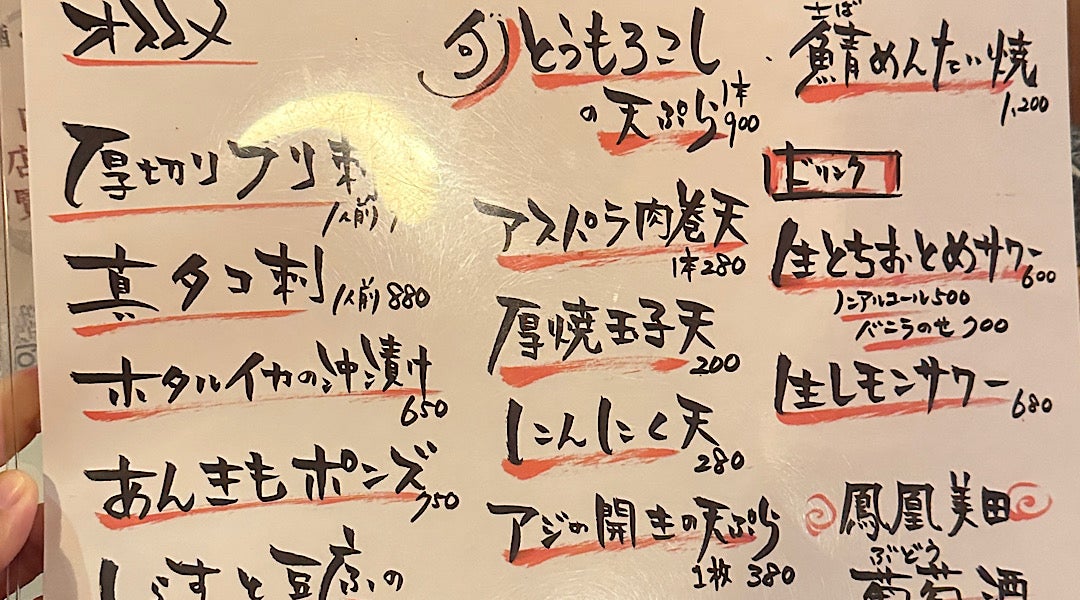 オススメ
厚切りブリ刺
1人前
真タコ刺 1人前 880
ホタルイカの沖漬け
650
あんきもポンズ
750
しらすと豆ふの
旬 とうもろこし
の天ぷら 1本 900
アスパラ肉巻天
1本 280
厚焼玉子天
200
にんにく天
280
アジの開きの天ぷら
1枚 380
さば
鯖めんたい焼
1,200
ドリンク
生とちおとめサワー
600
ノンアルコール 500
バニラのせ 700
生レモンサワー
680
鳳凰美田
ぶどう
葡萄酒